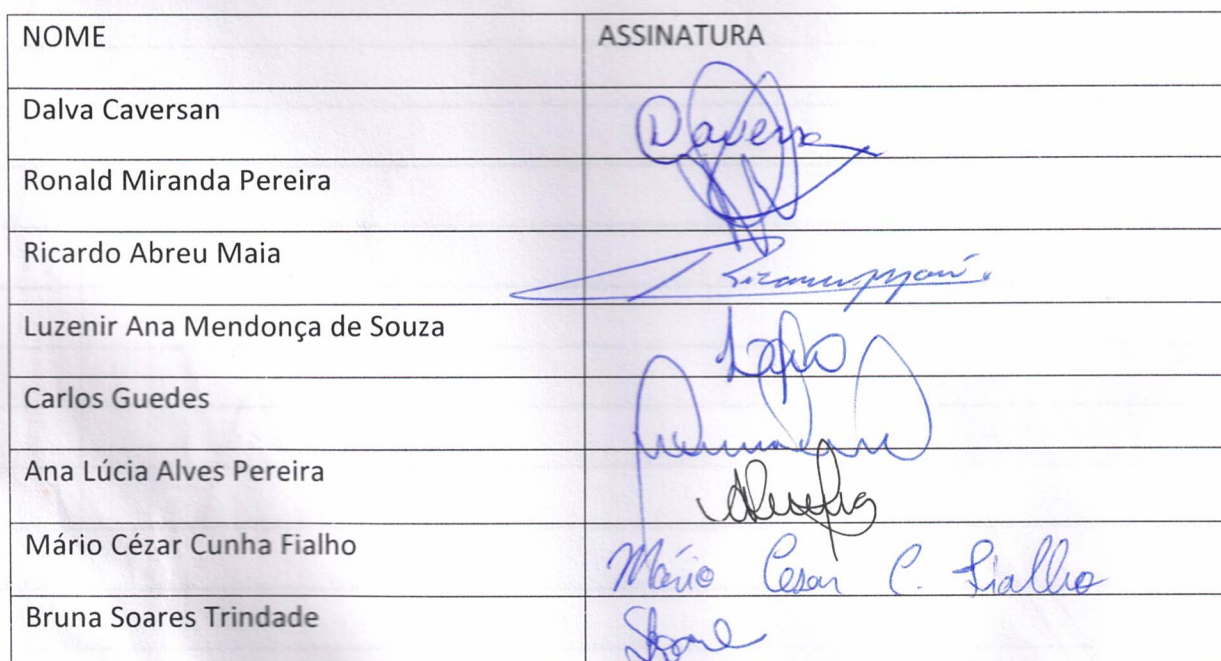 NOME ASSINATURA
Dalva Caversan
Ronald Miranda Pereira
Ricardo Abreu Maia
Luzenir Ana Mendonça de Souza
Carlos Guedes
Ana Lúcia Alves Pereira
Mário Cézar Cunha Fialho Mário Cesar C. Fialho
Bruna Soares Trindade